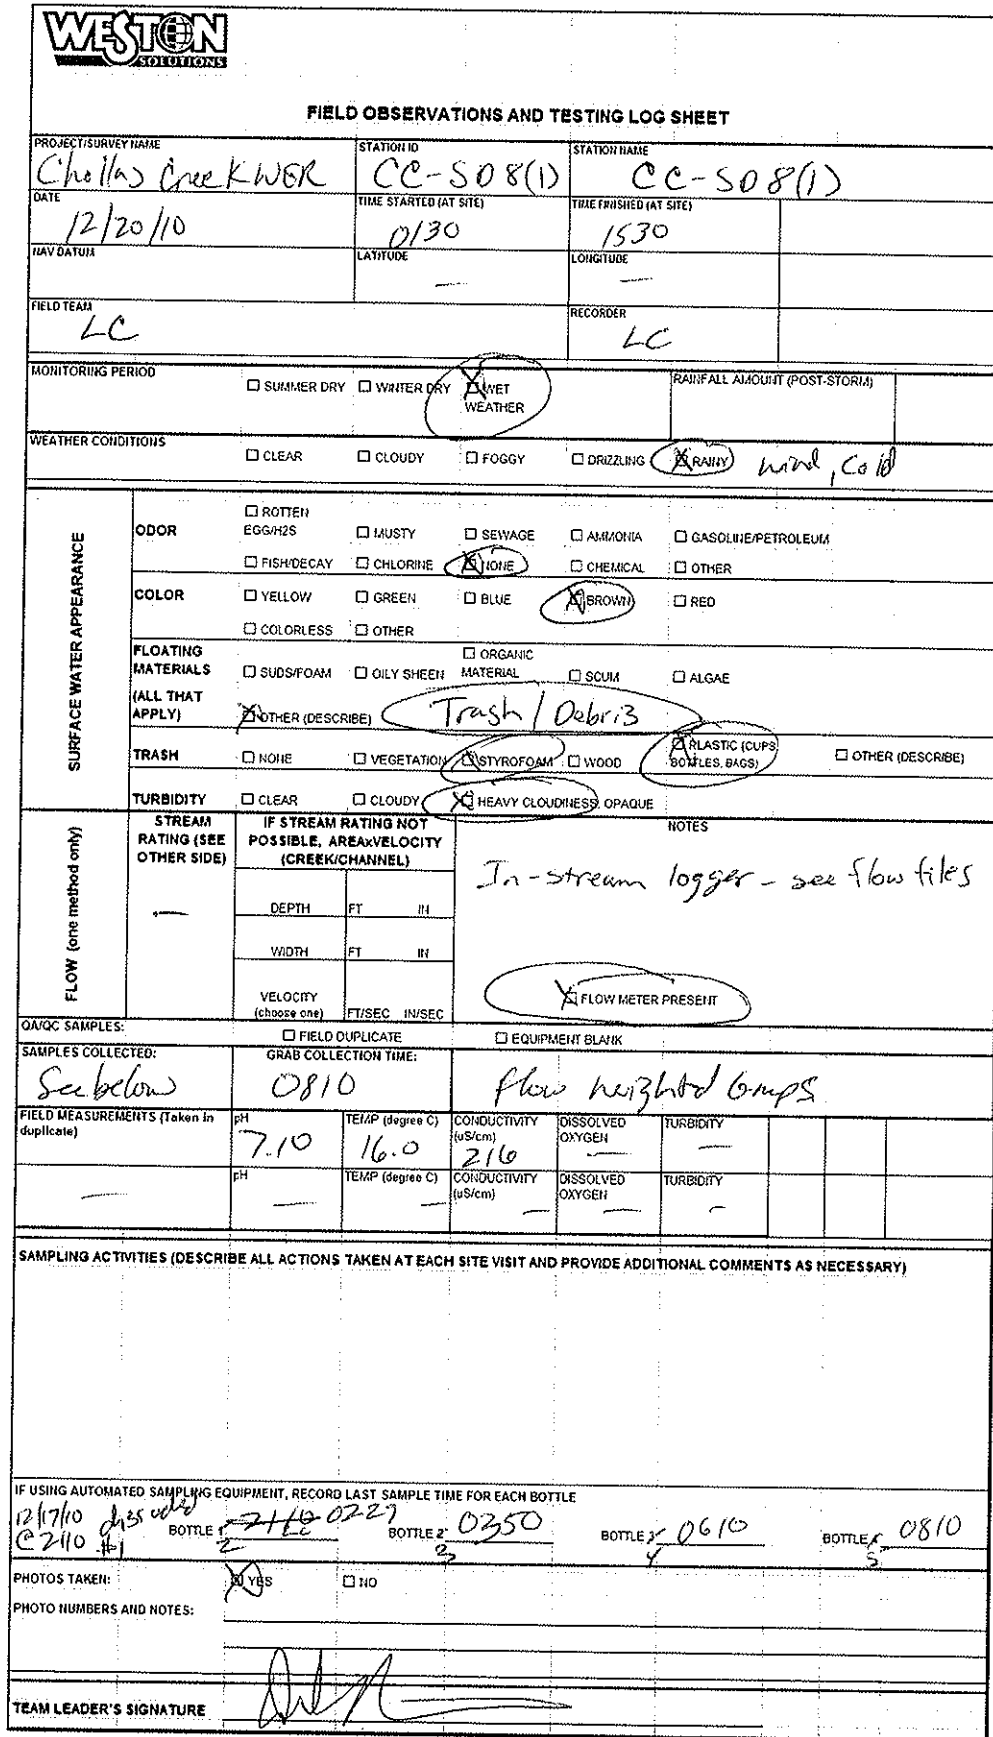 WESTON
SOLUTIONS
FIELD OBSERVATIONS AND TESTING LOG SHEET
PROJECT/SURVEY NAME STATION ID STATION NAME
Chollas Creek WER CC-SD8(1) CC-SD8(1)
DATE TIME STARTED (AT SITE) TIME FINISHED (AT SITE)
12/20/10 0130 1530
NAV DATUM LATITUDE LONGITUDE
— —
FIELD TEAM RECORDER
LC LC
MONITORING PERIOD ☐ SUMMER DRY ☐ WINTER DRY ☒ WET WEATHER RAINFALL AMOUNT (POST-STORM)
WEATHER CONDITIONS ☐ CLEAR ☐ CLOUDY ☐ FOGGY ☐ DRIZZLING ☒ RAINY wind, cold
SURFACE WATER APPEARANCE
ODOR ☐ ROTTEN EGG/H2S ☐ MUSTY ☐ SEWAGE ☐ AMMONIA ☐ GASOLINE/PETROLEUM
☐ FISH/DECAY ☐ CHLORINE ☒ NONE ☐ CHEMICAL ☐ OTHER
COLOR ☐ YELLOW ☐ GREEN ☐ BLUE ☒ BROWN ☐ RED
☐ COLORLESS ☐ OTHER
FLOATING MATERIALS (ALL THAT APPLY) ☐ SUDS/FOAM ☐ OILY SHEEN ☐ ORGANIC MATERIAL ☐ SCUM ☐ ALGAE
☒ OTHER (DESCRIBE) Trash / Debris
TRASH ☐ NONE ☐ VEGETATION ☒ STYROFOAM ☐ WOOD ☒ PLASTIC (CUPS, BOTTLES, BAGS) ☐ OTHER (DESCRIBE)
TURBIDITY ☐ CLEAR ☐ CLOUDY ☒ HEAVY CLOUDINESS, OPAQUE
FLOW (one method only)
STREAM RATING (SEE OTHER SIDE) IF STREAM RATING NOT POSSIBLE, AREAxVELOCITY (CREEK/CHANNEL) NOTES
— In-stream logger - see flow files
DEPTH FT IN
WIDTH FT IN
VELOCITY (choose one) FT/SEC IN/SEC ☒ FLOW METER PRESENT
QA/QC SAMPLES: ☐ FIELD DUPLICATE ☐ EQUIPMENT BLANK
SAMPLES COLLECTED: GRAB COLLECTION TIME:
See below 0810 flow weighted
FIELD MEASUREMENTS (Taken in duplicate) pH TEMP (degree C) CONDUCTIVITY (uS/cm) DISSOLVED OXYGEN TURBIDITY
7.10 16.0 216 — —
pH TEMP (degree C) CONDUCTIVITY (uS/cm) DISSOLVED OXYGEN TURBIDITY
— — — — — —
SAMPLING ACTIVITIES (DESCRIBE ALL ACTIONS TAKEN AT EACH SITE VISIT AND PROVIDE ADDITIONAL COMMENTS AS NECESSARY)
IF USING AUTOMATED SAMPLING EQUIPMENT, RECORD LAST SAMPLE TIME FOR EACH BOTTLE
12/17/10 discarded
@ 2110 #1 BOTTLE 2 2110 LC 0227 BOTTLE 2 3 0350 BOTTLE 3 4 0610 BOTTLE 5 0810
PHOTOS TAKEN: ☒ YES ☐ NO
PHOTO NUMBERS AND NOTES:
TEAM LEADER'S SIGNATURE